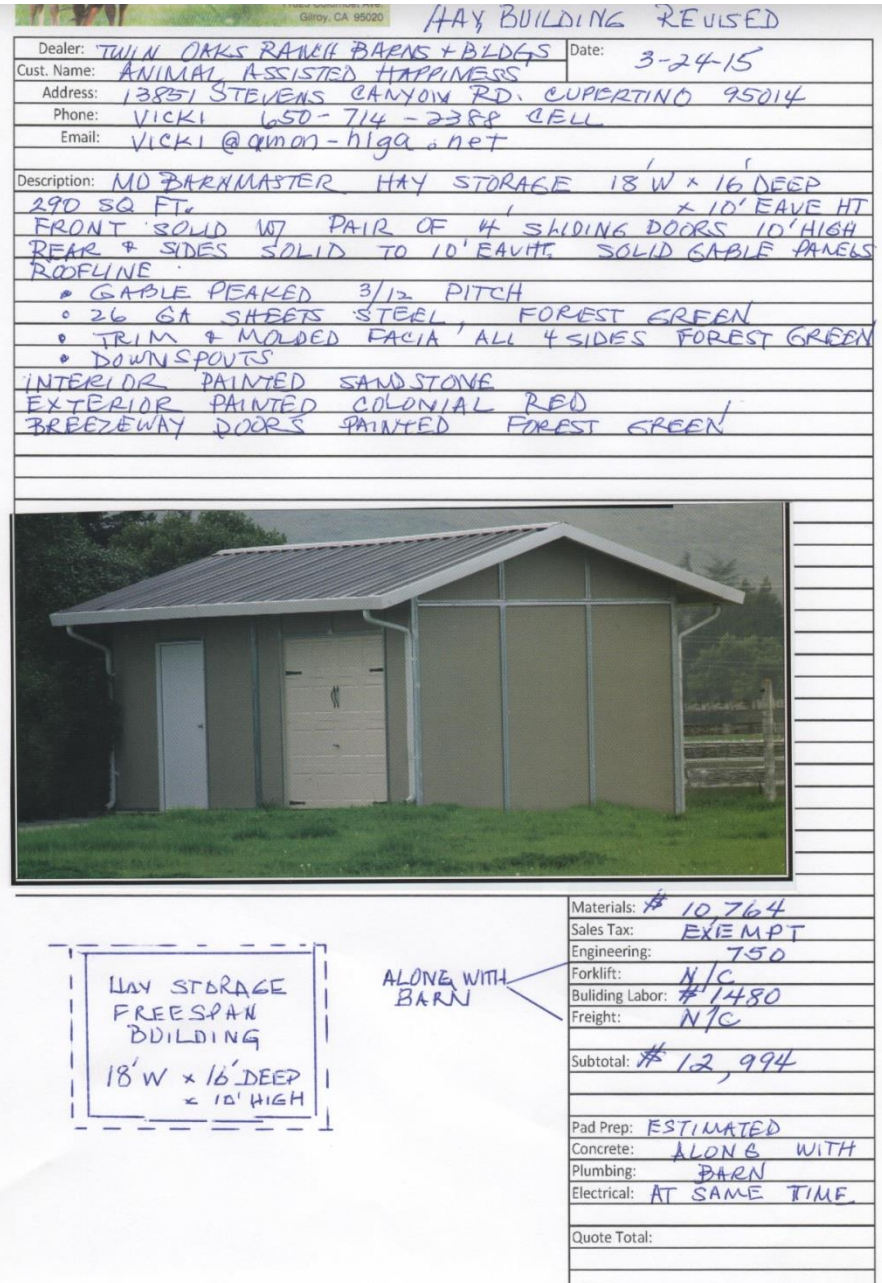 Gilroy, CA 95020
HAY BUILDING REVISED
Dealer: TWIN OAKS RANCH BARNS + BLDGS Date: 3-24-15
Cust. Name: ANIMAL ASSISTED HAPPINESS
Address: 13851 STEVENS CANYON RD. CUPERTINO 95014
Phone: VICKI 650-714-2388 CELL
Email: VICKI@amon-higa.net
Description: MD BARNMASTER HAY STORAGE 18'W x 16'DEEP
290 SQ FT. x 10' EAVE HT
FRONT SOLID W/ PAIR OF 4' SLIDING DOORS 10'HIGH
REAR & SIDES SOLID TO 10'EAVHT. SOLID GABLE PANELS
ROOFLINE
• GABLE PEAKED 3/12 PITCH
• 26 GA SHEETS STEEL, FOREST GREEN
• TRIM & MOLDED FACIA ALL 4 SIDES FOREST GREEN
• DOWNSPOUTS
INTERIOR PAINTED SANDSTONE
EXTERIOR PAINTED COLONIAL RED
BREEZEWAY DOORS PAINTED FOREST GREEN
Materials: $ 10,764
Sales Tax: EXEMPT
Engineering: 750
Forklift: N/C
Buliding Labor: $ 1480
Freight: N/C
ALONG WITH
BARN
Subtotal: $ 12,994
HAY STORAGE
FREESPAN
BUILDING
18'W x 16'DEEP
x 10' HIGH
Pad Prep: ESTIMATED
Concrete: ALONG WITH
Plumbing: BARN
Electrical: AT SAME TIME
Quote Total: